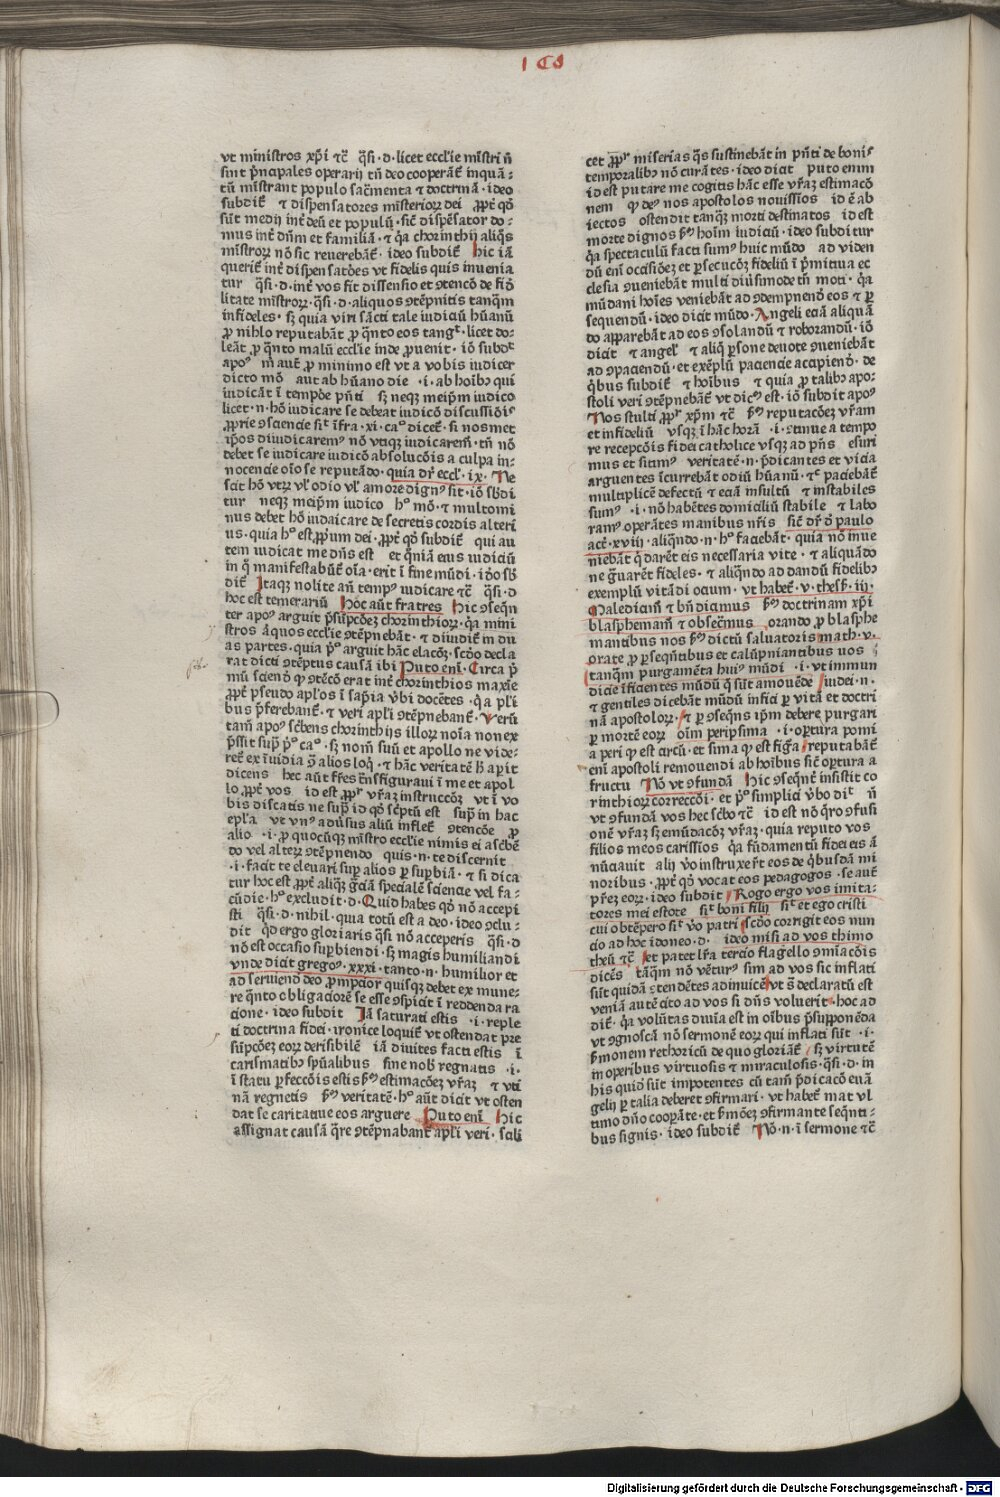 I CO
vt ministros xp̄i ⁊c̄ q̄si · d · licet eccl'ie mīstri ñ
sint p̄ncipales operarij tñ deo cooperāt̄ inquā⸗
tū mīstrant populo sac̄menta ⁊ doctrinā · ideo
subdit̄ ⁊ dispensatores misteriorꝝ dei ꝓpt̄ qđ
sūt medij int̄ deū et populū · sic̄ dispēsator do⸗
mus int̄ dn̄m et familiā · ⁊ q̄a chorinthij aliq̄s
mīstrorꝝ nō sic reuerebāt̄ · ideo subdit̄ Hic iā
querit̄ int̄ dispensatōes vt fidelis quis inuenia
tur q̄si · d · int̄ vos fit dissensio et ꝯtencō de fid̄
litate mīstrorꝝ · q̄si · d · aliquos ꝯtēpnitis tanq̄m
infideles · sꝫ quia viri sācti tale iudiciū hūanū
ꝓ nihlo reputabāt ꝓ q̄nto eos tangᵗ · licet do⸗
leāt ꝓ q̄nto malū eccl'ie inde ꝓuenit · iō subdᵗ
apoꝰ m̄ aut̄ ꝓ minimo est vt a vobis iudicer
dicto mō aut ab hūano die · i · ab hoībꝫ qui
iudicāt ī tempōe pn̄ti sꝫ neqꝫ meip̄m iudico
licet · n · hō iudicare se debeat iudicō discussiōis
ꝓprie ꝯsciencie sic̄ īfra · xi · caᵒ dicet̄ · si nosmet
ip̄os diiudicaremꝰ nō vtiqꝫ iudicarem̄ · tn̄ nō
debet se iudicare iudicō absolucōis a culpa in⸗
nocencie oīo se reputādo · quia dr̄ eccl' · ix · Ne
scit hō vtrꝝ vl' odio vl' amore dignꝰ sit · iō sb̄di
tur neqꝫ meip̄m iudico hᵒ mō · ⁊ multomi
nus debet hō iudaicare de secretis cordis alteri
us · quia hᵒ est ꝓpum dei · ꝓpt̄ qđ subdit̄ qui au
tem iudicat me dn̄s est et qm̄iā eius iudiciū
in q̄ manifestabūt̄ oīa · erit ī fine mūdi · idō sb̄
dit̄ Itaqꝫ nolite an̄ tempꝰ iudicare ⁊c̄ q̄si · d
hoc est temerariū Hoc aūt fratres Hic ꝯseqn̄
ter apoꝰ arguit p̄sūpcōeꝫ chorinthiorꝝ · q̄a mini
stros ātiquos eccl'ie ꝯtēpnebāt · ⁊ diuidit̄ in du
as partes · quia pᵒ arguit hāc elacōꝫ · scd̄o decla
rat dicti ꝯtēptus causā ibi Puto eni̅ · Circa p̄
mū sciend̄ ꝙ ꝯtēcō erat int̄ chorinthios maxīe
ꝓpt̄ pseudo apl'os ī sap̄ia v̄bi docētes · q̄a pl'i
bus p̄ferebant̄ · ⁊ veri apl'i ꝯtēpnebant̄ · Verū
tam̄ apoꝰ sc̄bens chorinthijs illorꝝ noīa non ex
p̄ssit sup̄ pᵒ caᵒ · sꝫ nom̄ suū et apollo ne vide⸗
ret̄ ex īuidia ꝯ̄ alios loq̄ · ⁊ hāc veritatē h̄ apit
dicens hec aūt frēs t̄nsfiguraui ī me et apol
lo ꝓpt̄ vos id est ꝓpʳ vr̄aꝫ instruccōꝫ vt ī vo
bis discatis ne sup̄ id qđ sc̄ptū est sup̄m hac
epl'a vt vnꝰ adūsus aliū inflet̄ ꝯtencōe ꝓ
alio · i · ꝓ quocūqꝫ mīstro eccl'ie nimis ei asc̄bē
do vel alterꝝ ꝯtēpnendo quis · n · te discernit
· i · facit te eleuari sup̄ alios ꝑ sup̄biā · ⁊ si dica
tur hoc est ꝓpt̄ aliqꝫ gr̄ciā specialē sciencie vel fa⸗
cūdie · hᵒ excludit · d · Quid habes qđ nō accepi
sti q̄si · d · nihil · quia totū est a deo · ideo ꝯclu⸗
dit qd ergo gloriaris q̄si nō acceperis q̄si · d
nō est occasio sup̄biendi · sꝫ magis humiliandi
vnde dicit gregoꝰ · xxxi · tanto · n · humilior et
ad seruiend̄ deo ꝓmpcior quisqꝫ debet ex mune⸗
re q̄nto obligaciorē se esse ꝯspicit ī reddenda ra
cione · ideo subdit Iā saturati estis · i · reple
ti doctrina fidei · ironice loquit̄ vt ostendat pre
sūpcōeꝫ eorꝝ derisibilē iā diuites facti estis ī
carismatibꝫ sp̄ualibus sine nob̄ regnatis · i ·
ī statu ꝑfeccōis estis ẜꝫ estimacōeꝫ vr̄aꝫ ⁊ vti
nā regnetis ẜꝫ veritatē · hᵒ aūt dicit vt osten
dat se caritatiue eos arguere Puto eni̅ Hic
assignat causā q̄re ꝯtēpnabant̄ apl'i veri · scili
cet ꝓpʳ miserias q̄s sustinebāt in pn̄ti de bonis
temporalibꝫ nō curātes · ideo dicit puto enim
id est putare me cogitis hāc esse vr̄aꝫ estimacō
nem ꝙ deꝰ nos apostolos nouissīos id ē ab
iectos ostendit tanqꝫ morti destinatos id est
morte dignos ẜꝫ hoīm iudiciū · ideo subditur
q̄a spectaculū facti sumꝰ huic mūdo ad viden
dū eni̅ occisiōeꝫ et ꝑsecucōꝫ fideliū ī p̄mitiua ec
clesia ꝯueniebāt multi diūsimode tn̄ moti · q̄a
mūdani hoīes veniebāt ad ꝯdempnend̄ eos ⁊ ꝑ
sequendū · ideo dicit mūdo · Angeli eciā aliquā
do apparebāt ad eos ꝯsolandū ⁊ roborandū · iō
dicit ⁊ angel' ⁊ aliq̄ ꝑsone deuote ꝯueniebāt
ad ꝯpaciendū · et exēplū paciencie accipiend̄ · de
q̄bus subdit̄ ⁊ hoībus ⁊ quia ꝓ talibꝫ apo⸗
stoli veri ꝯtēpnebāt̄ vt dictꝰ est · iō subdit apoꝰ
Nos stulti ꝓpʳ xp̄m ⁊c̄ ẜꝫ reputacōeꝫ vr̄am
et infideliū vsqꝫ ī hāc horā · i · ꝯtinue a tempo
re recepcōis fidei catholice vsqꝫ ad pn̄s esuri
mus et sitimꝰ veritatē · n · p̄dicantes et vicia
arguentes īcurrebāt odiū hūanū · ⁊c̄ paciebāt̄
multiplicē defectū ⁊ eciā insultū ⁊ instabiles
sumꝰ · i · nō habētes domiciliū stabile ⁊ labo
ramꝰ operātes manibus nr̄is sic̄ dr̄ d̄ paulo
act̄ · xviij · aliqn̄do · n · hᵒ faciebāt · quia nō inue
niebāt q̄ darēt eis necessaria vite · ⁊ aliquādo
ne g̈uarēt fideles · ⁊ aliqn̄do ad dandū fidelibꝫ
exemplū vitādi ocium · vt habet̄ · v · thess̄ · iij ·
Maledicim̄ ⁊ bn̄dicimus ẜꝫ doctrinam xp̄i
blasphemam̄ ⁊ obsec̄mus orando ꝓ blasphe
mantibus nos ẜꝫ dictū saluatoris math · v ·
orate ꝓ ꝑseqn̄tibus et calūpniantibus uos
tanq̄m purgamēta huiꝰ mūdi · i · vt immun
dicie īficientes mūdū q̄ sūt amouēde Iudei · n ·
⁊ gentiles dicebāt mūdū infici ꝑ vitā et doctri
nā apostolorꝝ · ⁊ ꝑ ꝯseqn̄s ip̄m debere purgari
ꝑ mortē eorꝝ oīm peripsima · i · opertura pomi
a peri ꝙ est circū · et sima ꝙ est fig̈a reputabāt̄
eni̅ apostoli remouendi ab hoībus sic̄ opertura a
fructu Nō vt ꝯfundā Hic ꝯseqnt̄ insistit co
rinthiorꝝ correccōi · et pᵒ simplici v̄bo diᵗ ñ
vt ꝯfundā vos hec sc̄bo ⁊c̄ id est nō q̄ro ꝯfusi
onē vr̄aꝫ sꝫ emūdacōꝫ vr̄aꝫ · quia reputo vos
filios meos carissīos q̄a fūdamentū fidei eis ā
nūciauit alij v̄o instruxer̄t eos de q̄busdā mi
noribus · ꝓpt̄ qđ vocat eos pedagogos · se aut̄
p̄reꝫ eorꝝ · ideo subdit Rogo ergo vos imita⸗
tores mei estote sic̄ boni filij sic̄ et ego cristi
cui obtēpero sic̄ v̄o patri scd̄o corrigit eos nun
cio ad hoc idoneo · d · ideo misi ad vos thimo
theū ⁊c̄ et patet lr̄a tercio flagello ꝯminacōis
dicēs tāq̄m nō vētꝰrꝰ sim ad vos sic inflati
sūt quidā ꝯtendētes adinuicē vt s̄ declaratū est
veniā autē cito ad vos si dn̄s voluerit · hoc ad
dit̄ · q̄a volūtas diuīa est in oībus p̄supponēda
vt ꝯgnoscā nō sermonē eorꝝ qui inflati sūt · i ·
ẜmonem rethoricū de quo gloriāt̄ sꝫ virtutē
in operibus virtuosis ⁊ miraculosis · q̄si · d · in
his quid sūt impotentes cū tam̄ p̄dicacō euā
gelij ꝑ talia deberet ꝯfirmari · vt habet̄ mat vl
timo dn̄o coopāte · et ẜmōeꝫ ꝯfirmante seqn̄ti⸗
bus signis · ideo subdit̄ Nō · n · ī sermone ⁊c̄
Digitalisierung gefördert durch die Deutsche Forschungsgemeinschaft - DFG